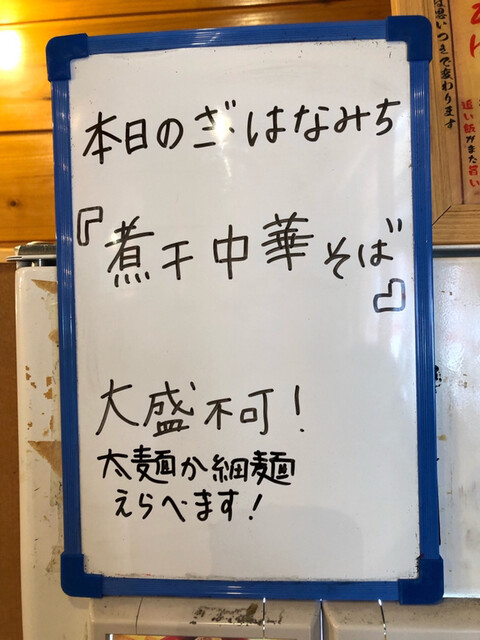 本日のざ・はなみち
『煮干中華そば』
大盛不可!
太麺か細麺
えらべます!
は思いつきで変わります
追い飯がまた旨い